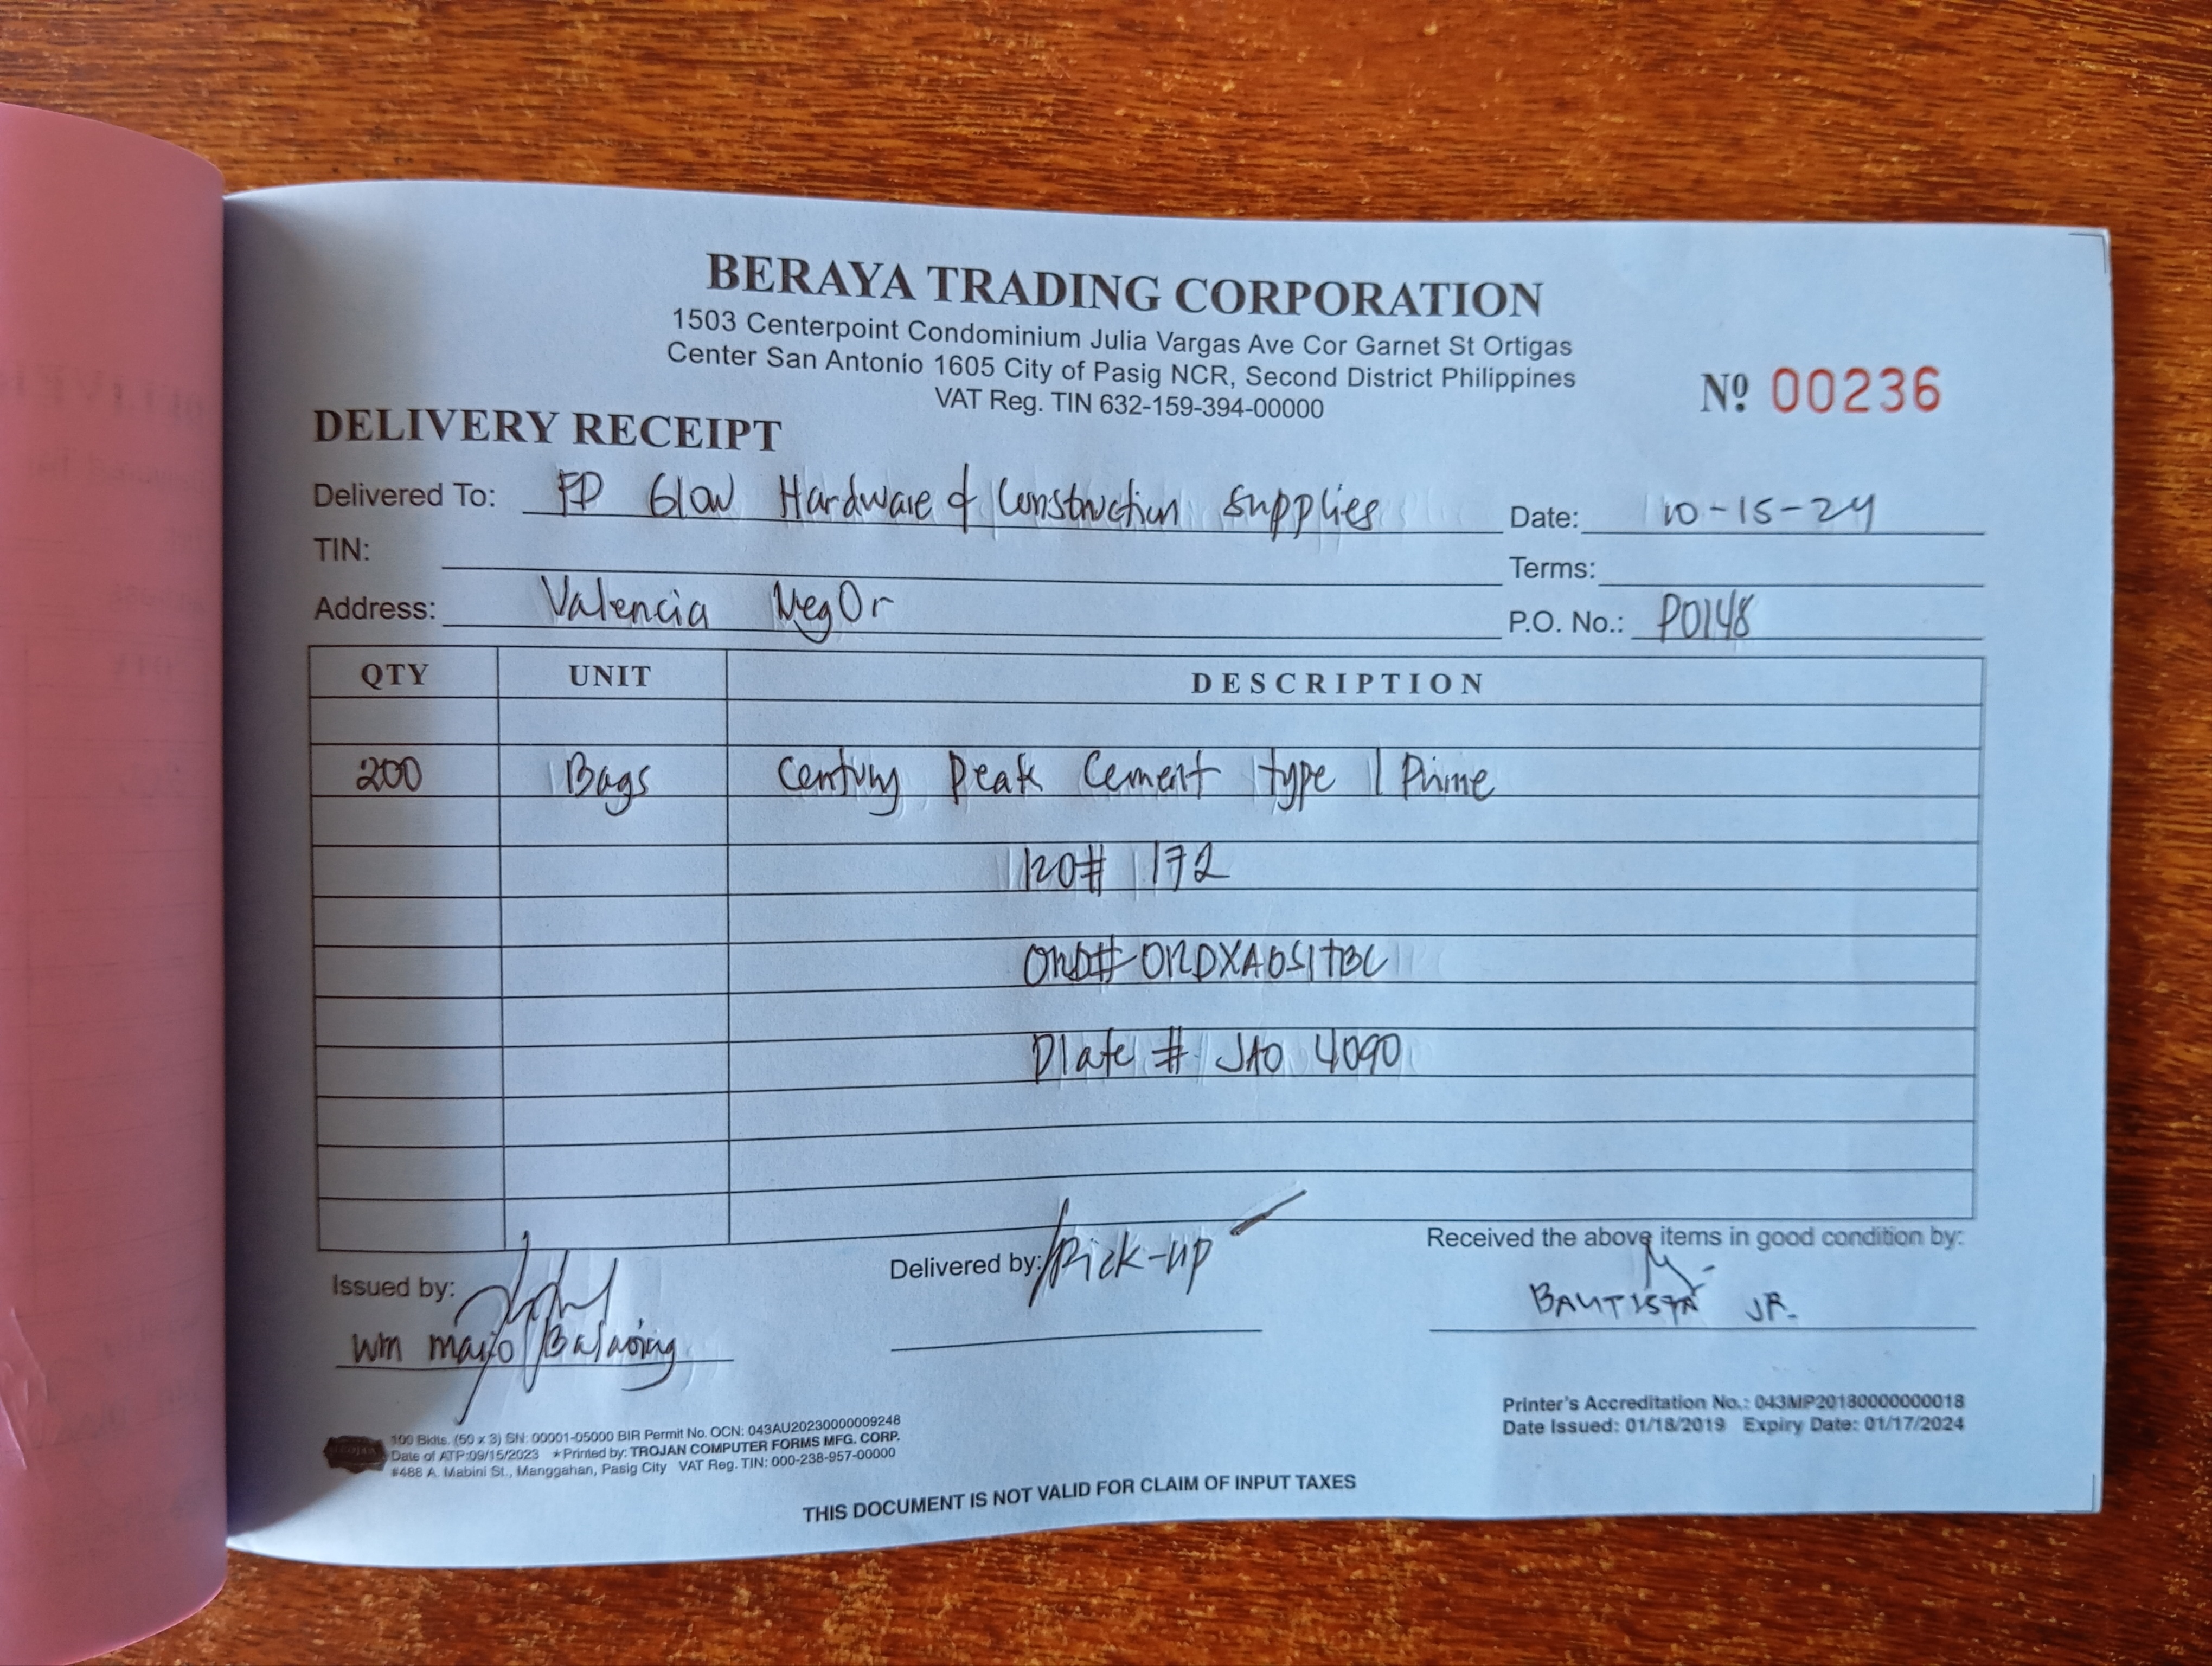 BERAYA TRADING CORPORATION
1503 Centerpoint Condominium Julia Vargas Ave Cor Garnet St Ortigas
Center San Antonio 1605 City of Pasig NCR, Second District Philippines
VAT Reg. TIN 632-159-394-00000
Nº 00236
DELIVERY RECEIPT
Delivered To: FD Glow Hardware & Construction Supplies
Date: 10-15-24
TIN:
Terms:
Address: Valencia NegOr
P.O. No.: PO148
QTY UNIT DESCRIPTION
200 Bags Century Peak Cement type 1 Prime
# 172
ORD#
Plate # JAO 4090
Issued by:
Delivered by: Pick-up
Received the above items in good condition by:
BAUTISTA JR.
wm
100 Bklts. (50 x 3) SN: 00001-05000 BIR Permit No. OCN: 043AU20230000009248
Date of ATP:09/15/2023 *Printed by: TROJAN COMPUTER FORMS MFG. CORP.
#488 A. Mabini St., Manggahan, Pasig City VAT Reg. TIN: 000-238-957-00000
Printer's Accreditation No.: 043MP20180000000018
Date Issued: 01/18/2019 Expiry Date: 01/17/2024
THIS DOCUMENT IS NOT VALID FOR CLAIM OF INPUT TAXES